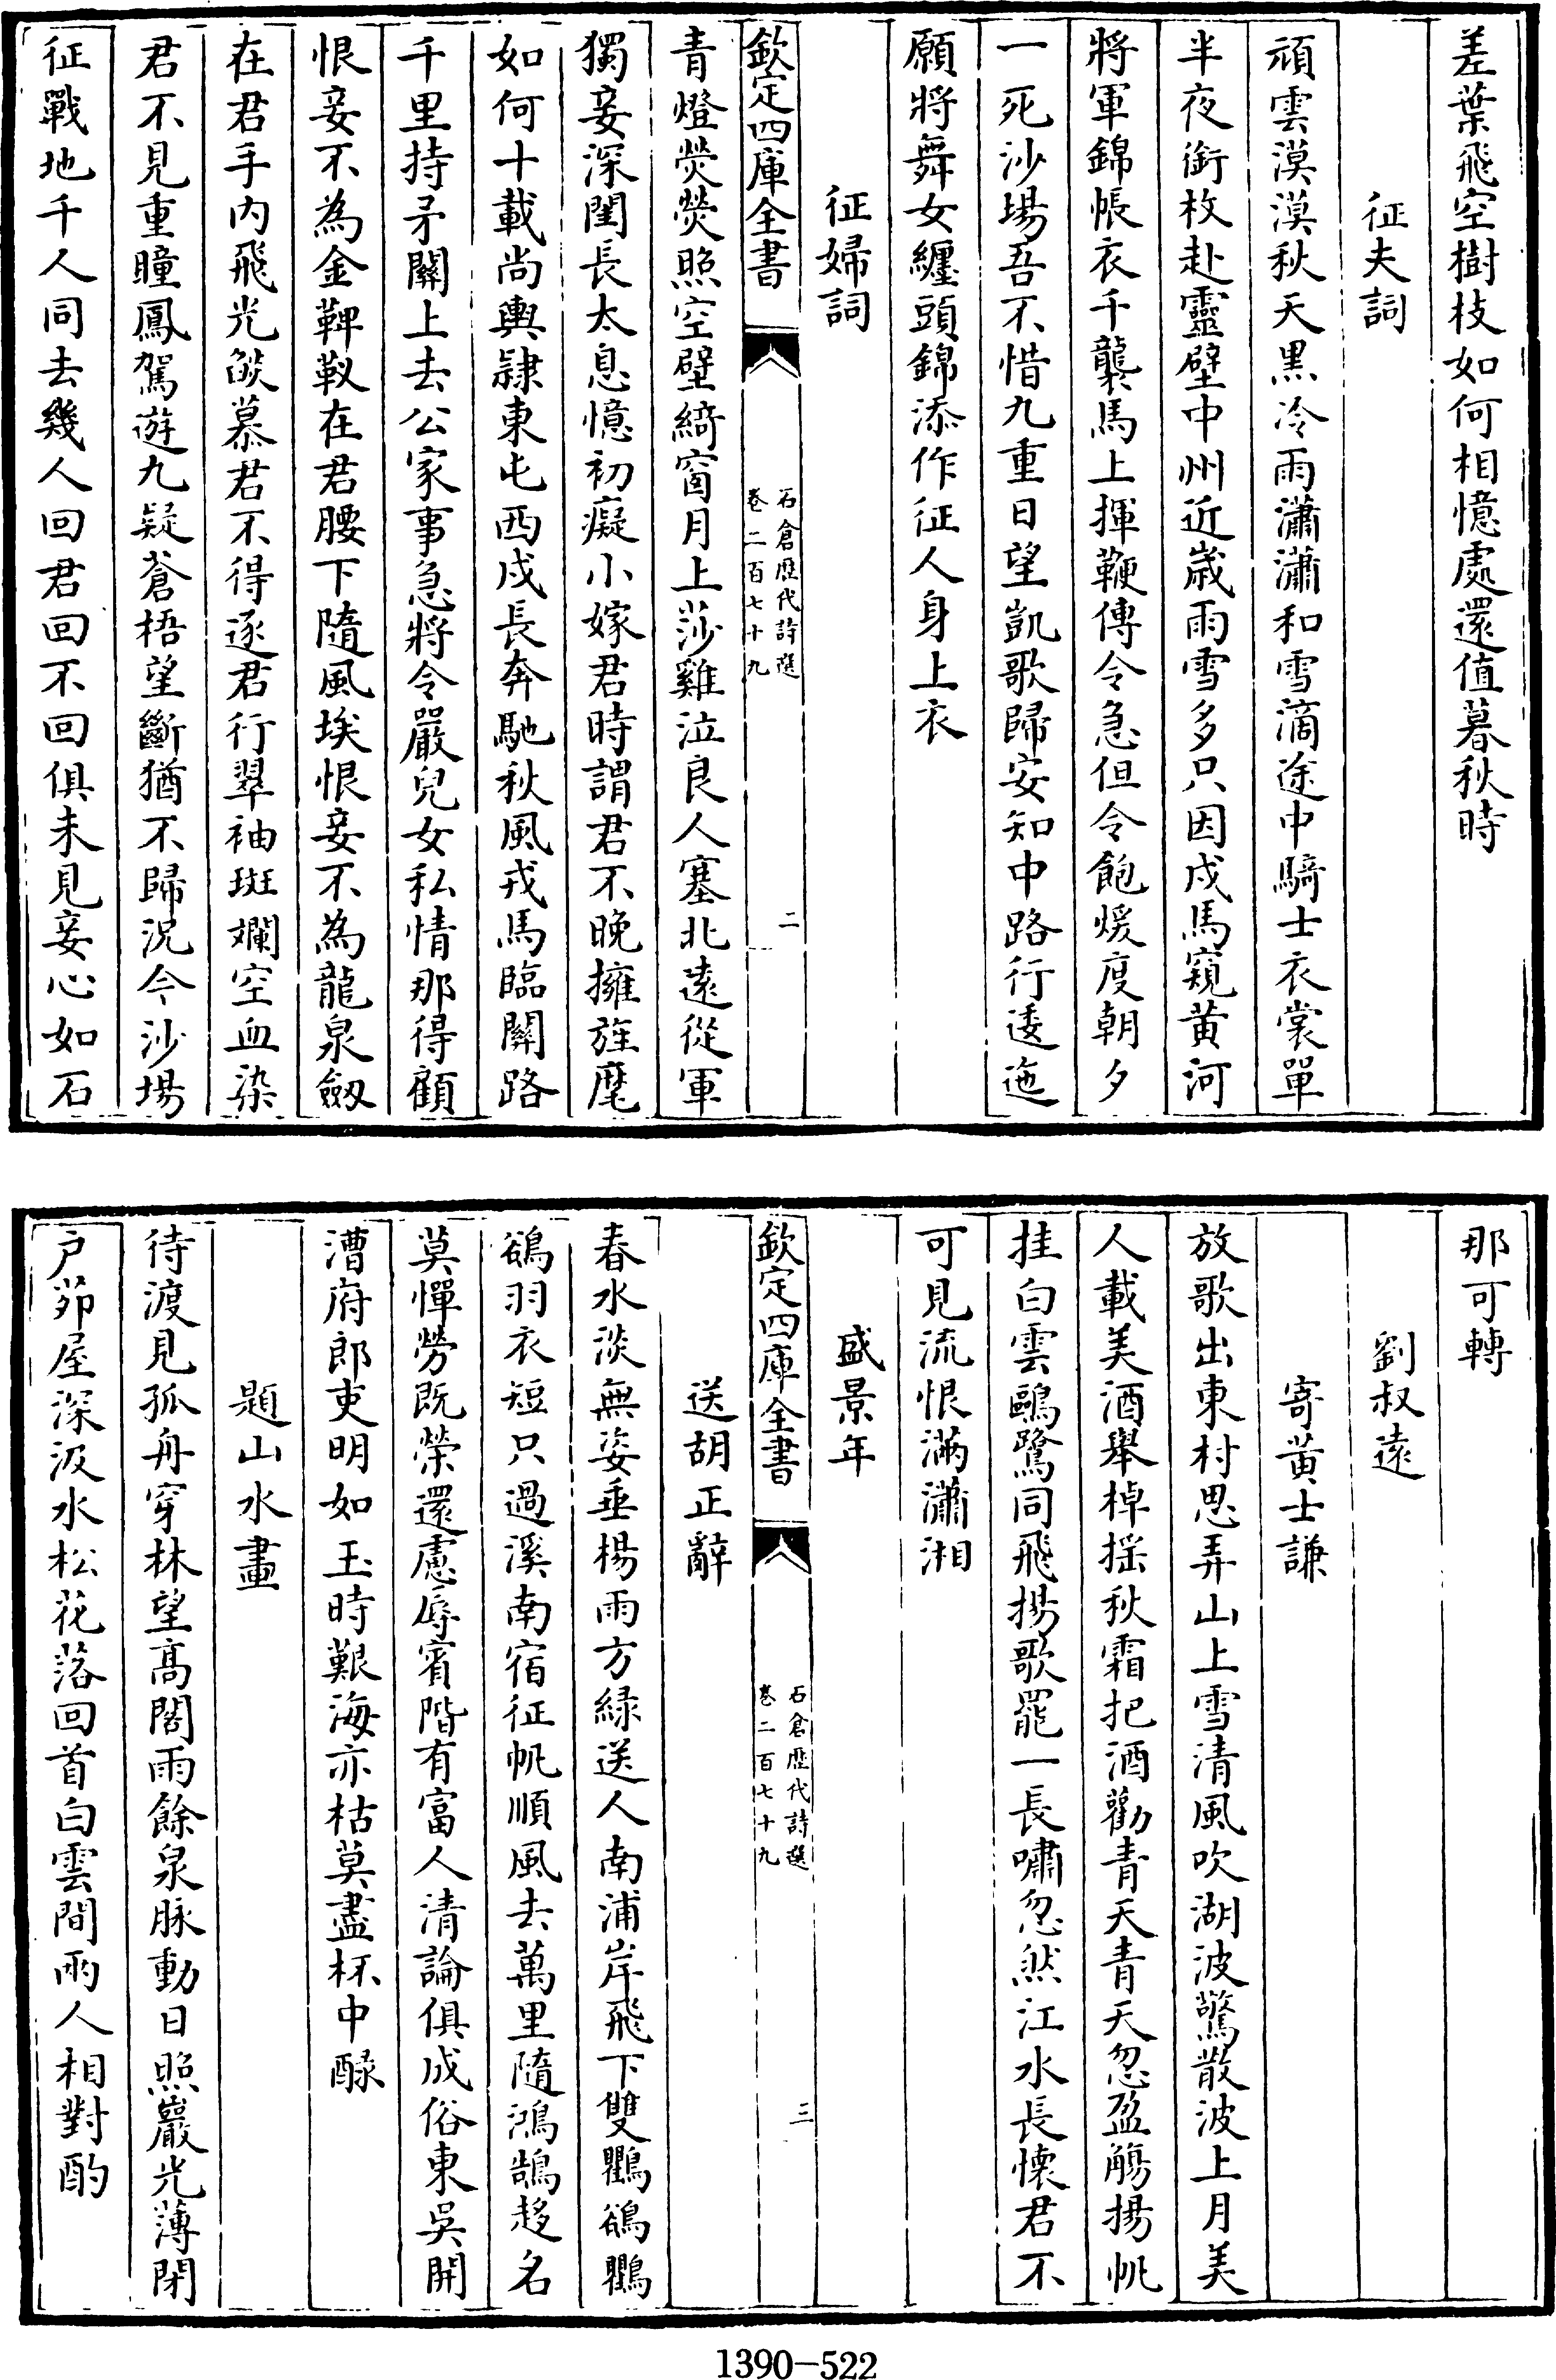 差葉飛空樹枝如何相憶處還值暮秋時
征夫詞
頑雲漠漠秋天黒冷雨瀟瀟和雪滴途中騎士衣裳單
半夜銜枚赴靈壁中州近歲雨雪多只因戍馬窺黄河
將軍錦帳衣千襲馬上揮鞭傳令急但令飽煖度朝夕
一死沙場吾不惜九重日望凱歌歸安知中路行逶迤
願將舞女纏頭錦添作征人身上衣
征婦詞
欽定四庫全書
石倉歴代詩選
卷二百七十九
二
青燈熒熒照空壁綺窗月上莎雞泣良人塞北遠從軍
獨妾深閨長太息憶初癡小嫁君時謂君不晚擁旌麾
如何十載尚輿隷東屯西戍長奔馳秋風戎馬臨關路
千里持矛關上去公家事急將令嚴兒女私情那得顧
恨妾不為金鞞靫在君腰下隨風埃恨妾不為龍泉劔
在君手内飛光燄慕君不得逐君行翠袖斑斕空血染
君不見重瞳鳳駕遊九疑蒼梧望斷猶不歸況今沙場
征戰地千人同去幾人回君回不回俱未見妾心如石
那可轉
劉叔遠
寄黄士謙
放歌出東村思弄山上雪清風吹湖波驚散波上月美
人載美酒舉棹揺秋霜把酒勸青天青天忽盈觴揚帆
挂白雲鷗鷺同飛揚歌罷一長嘯忽然江水長懐君不
可見流恨滿瀟湘
盛景年
送胡正辭
欽定四庫全書
石倉歴代詩選
卷二百七十九
三
春水淡無姿垂楊雨方緑送人南浦岸飛下雙鸜鵒鸜
鵒羽衣短只過溪南宿征帆順風去萬里隨鴻鵠趍名
莫憚勞既榮還慮辱賓階有富人清論俱成俗東吳開
漕府郎吏明如玉時艱海亦枯莫盡杯中醁
題山水畫
待渡見孤舟穿林望高閣雨餘泉脉動日照巖光薄閉
户茆屋深汲水松花落回首白雲間兩人相對酌
1390-522